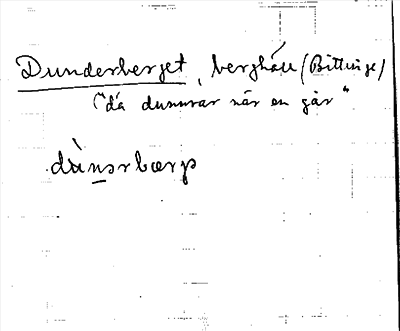 Dunderberget, berghäll (Bittinge)
("dä dunnrar när en går"
dùnərbærjə